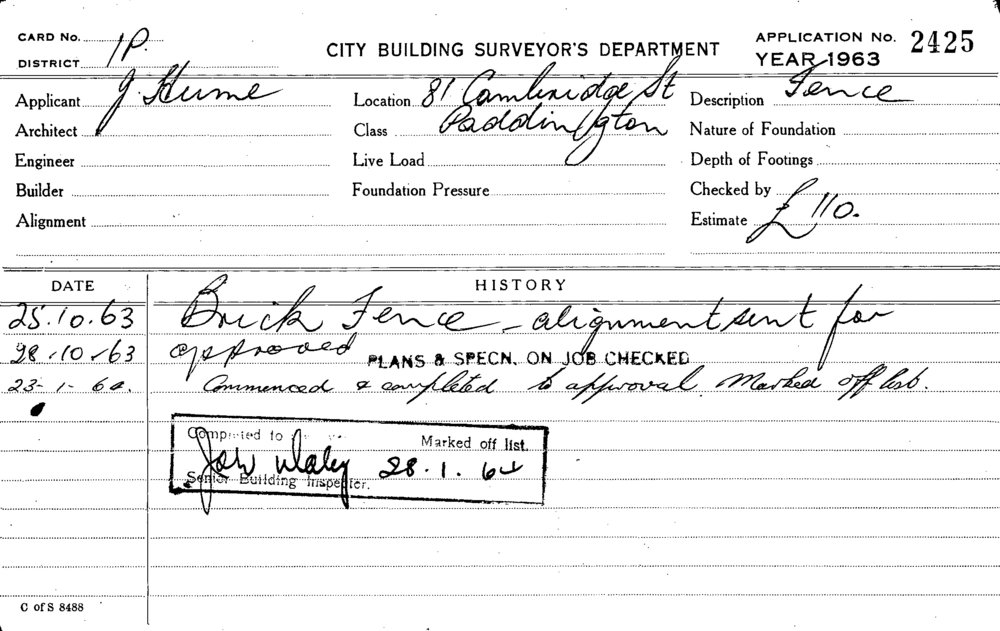 CARD No. 1P.
DISTRICT
CITY BUILDING SURVEYOR'S DEPARTMENT
APPLICATION No. 2425
YEAR 1963
Applicant J Hume
Location 81 Cambridge St
Description Fence
Architect
Class Paddington
Nature of Foundation
Engineer
Live Load
Depth of Footings
Builder
Foundation Pressure
Checked by
Alignment
Estimate £110.
DATE
HISTORY
25.10.63 Brick Fence - alignment sent for
approved
28.10.63 PLANS & SPECN. ON JOB CHECKED
23-1-64. Commenced & completed to approval. Marked off list.
Completed to
Marked off list.
28.1.64
Senior Building Inspector.
C of S 8488